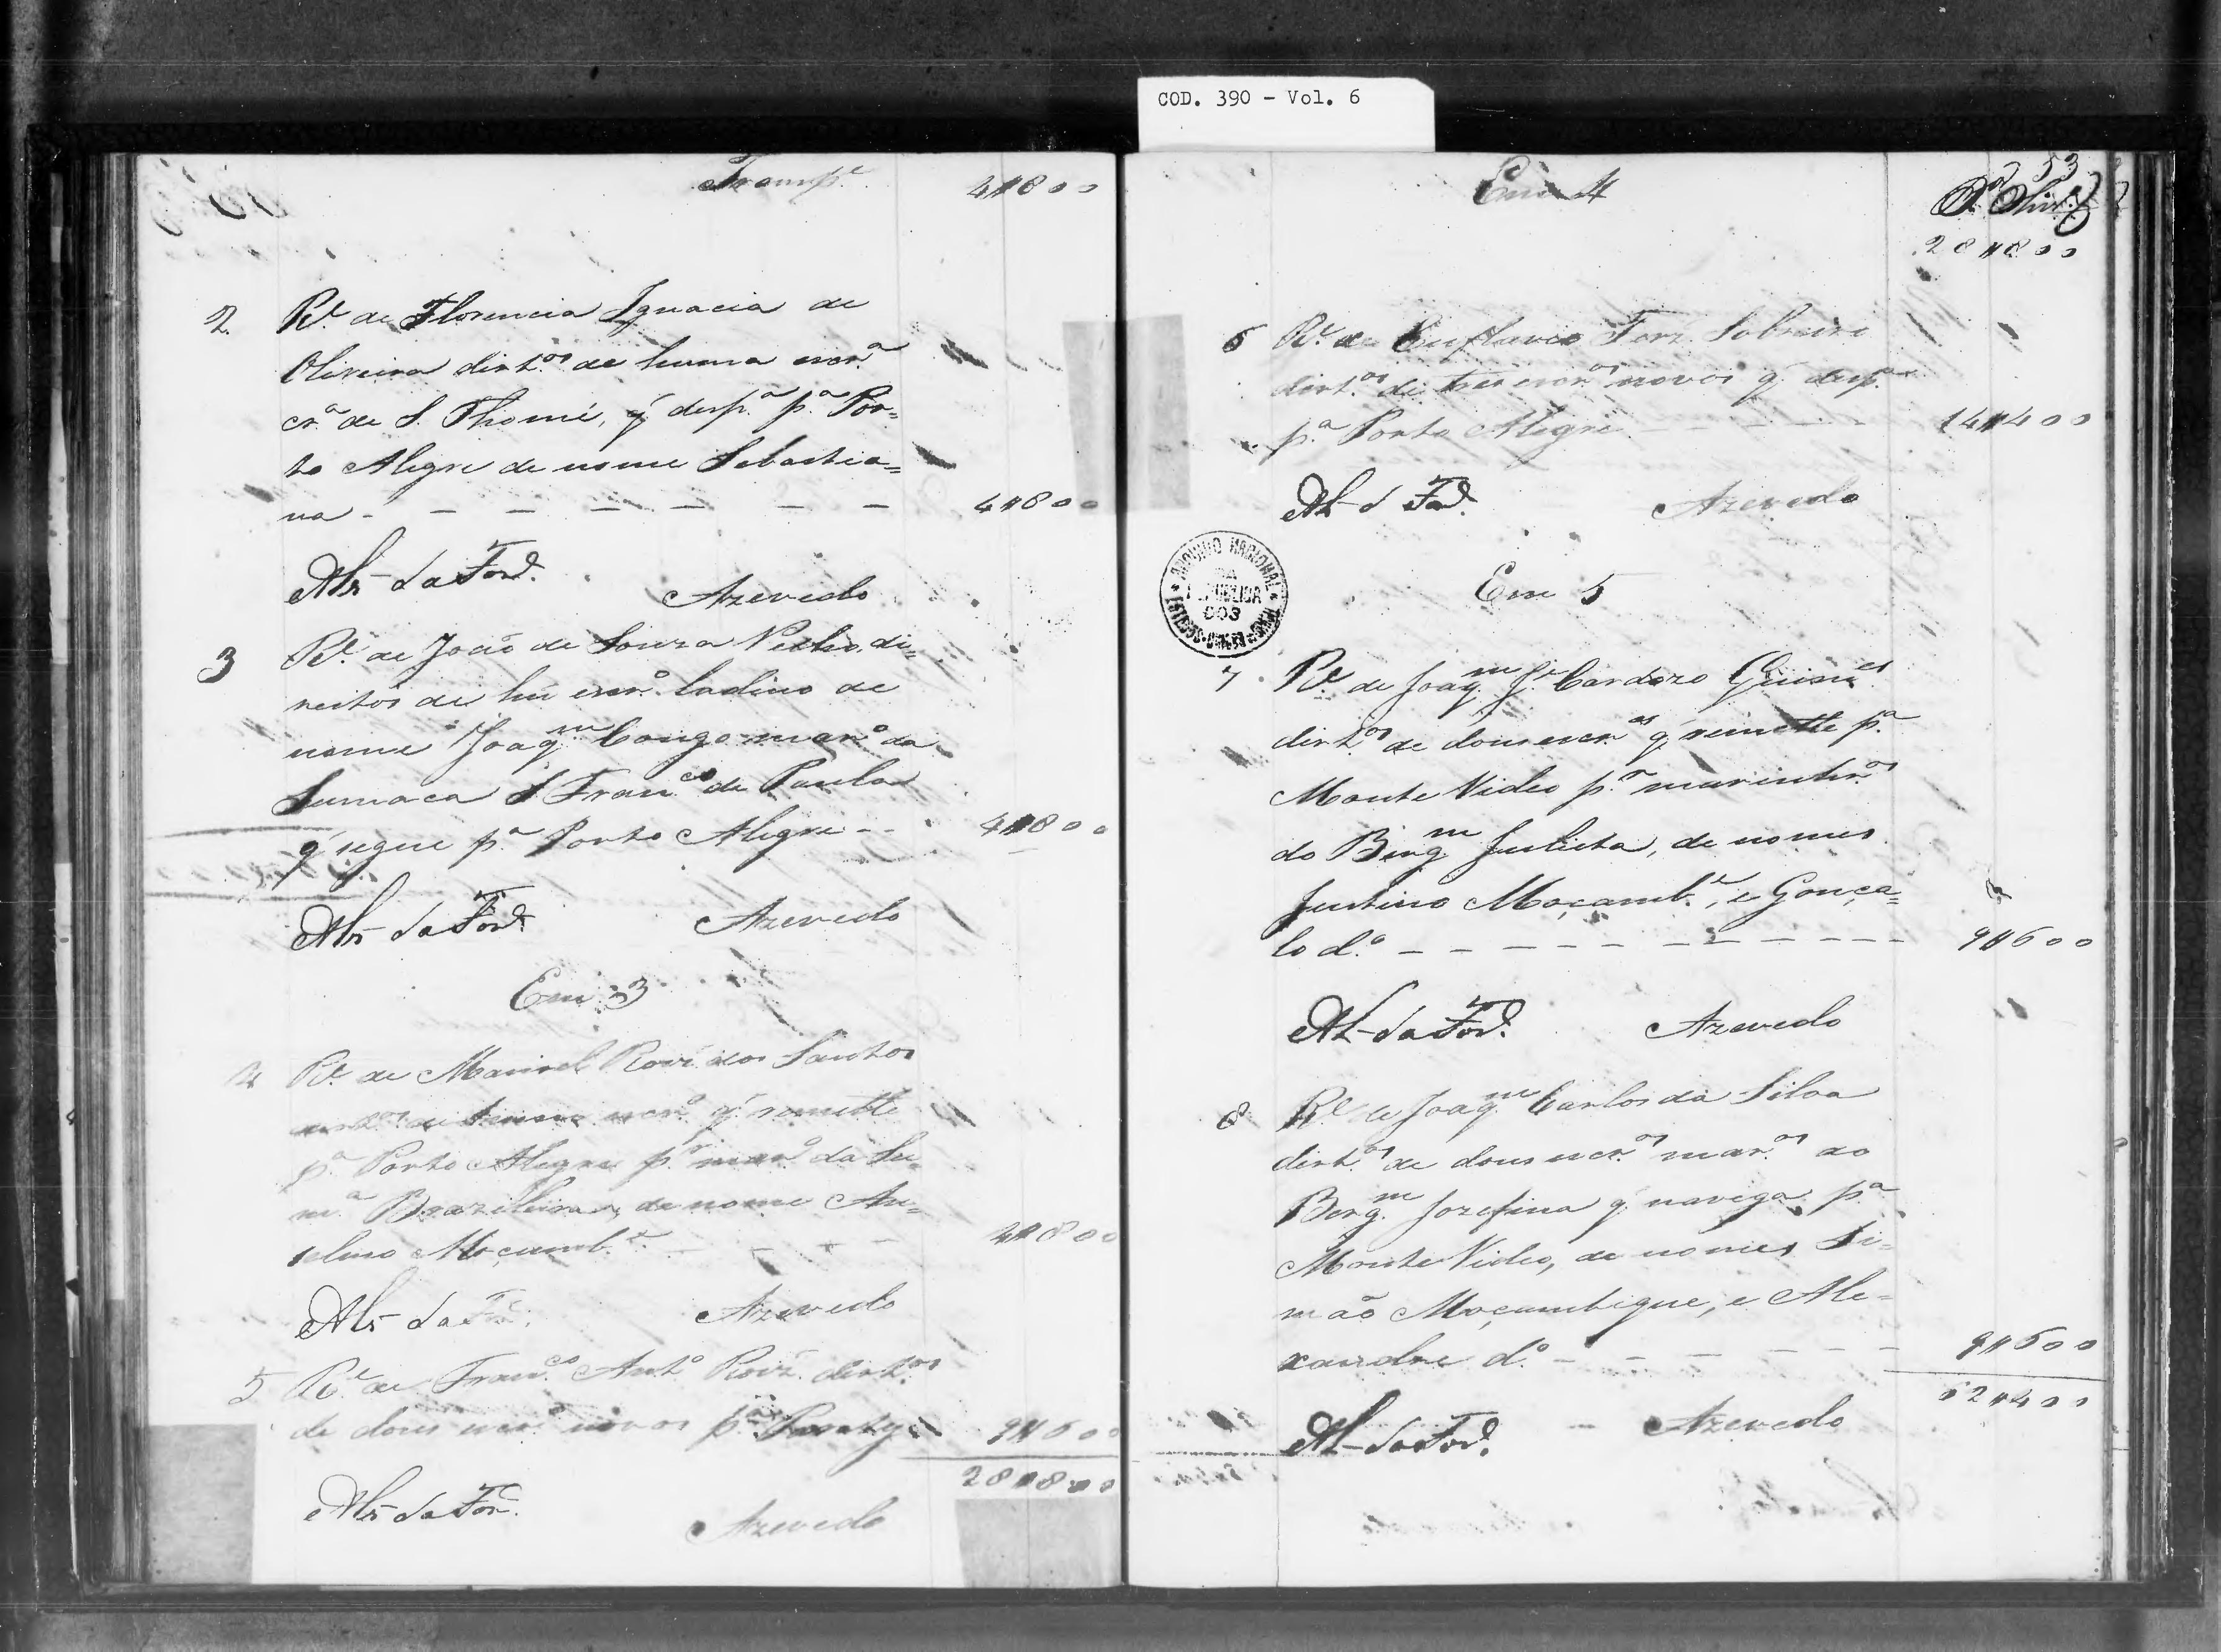 COD. 390 - Vol. 6
Transpe 4$800
2 Re de Florencia Ignacia de
Oliveira dirtos de huma escra
cra de S. Thomé, q' despa pa Por=
to Alegre de nome Sebastia=
na - - - - - - - 4$800
Azevedo
3 Re de João de Souza Velho, di=
reitos de hũ escro ladino de
nome Joaqm Congo maro da
Sumaca S Franco de Paula
q' segue pa Porto Alegre - - 4$800
Azevedo
Em 3
4 Re de Manoel Roiz dos Santos
escro q' remette
pa Porto Alegre pr maro da Su=
ma Brazileira, de nome An=
selmo Moçambe - - - - 4$800
Azevedo
5 Re de Franco Anto Roiz dirtos
de dous escros novos pa Paraty 9$600
28$800
Azevedo
53
Em 4
28$800
6 Re de Ferz Sobreira
dirtos de tres escros novos q' despa
pa Porto Alegre - - - - - 14$400
Azevedo
ARQUIVO NACIONAL
Em 5
7 Re de Joaqm Je Cardozo Guimes
dirtos de dous escros q' remette pa
Monte Video pr marinhros
do Bergm Julieta, de nomes
Justino Moçambe, e Gonça=
lo do - - - - - - - - - - 9$600
Azevedo
8 Re de Joaqm Carlos da Silva
dirtos de dous escros maros do
Bergm Jozefina q' navega pa
Monte Video, de nomes Si=
mão Moçambique, e Ale=
xandre do - - - - - - 9$600
62$400
Azevedo